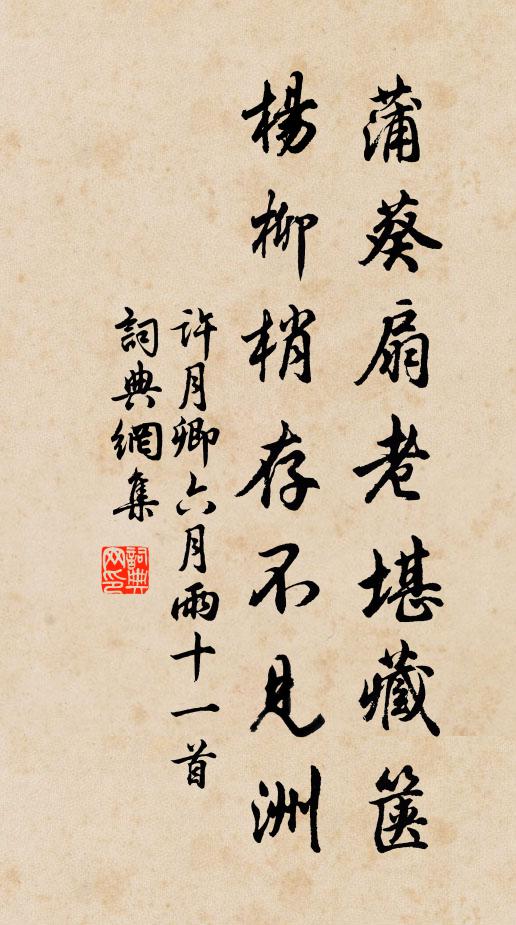 蒲葵扇老堪藏箧
楊柳梢存不見洲
許月卿六月雨十一首
詞典網集
詞典网印